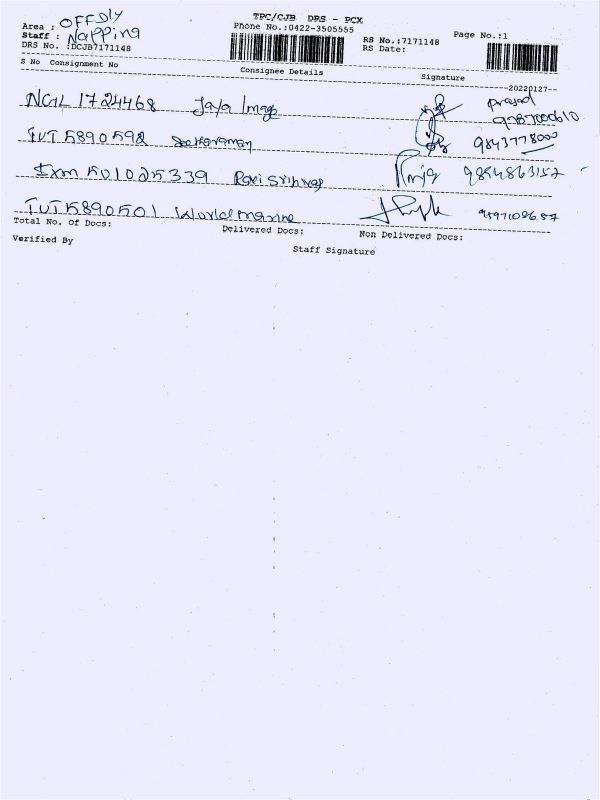 TPC/CJB DRS - PCX
Area : OFF DLY
Phone No.:0422-3505555
Page No.:1
Staff : Napping
RS No.:7171148
DRS No. :DCJB7171148
RS Date:
S No Consignment No
Consignee Details
Signature
20220127
NGL 1724468 Jaya Image Prasad
9787000610
TUT 5890592 9843778000
Exm 501025339 Ravi Srinivas 9884863152
TUT 5890501 World marine 9597102657
Total No. of Docs:
Delivered Docs:
Non Delivered Docs:
Verified By
Staff Signature